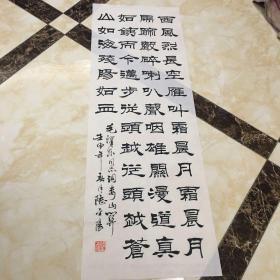 西風烈長空雁叫霜晨月霜晨月
馬蹄聲碎喇叭聲咽雄關漫道真
如鐵而今邁步從頭越從頭越蒼
山如海殘陽如血
毛澤東同志詞婁山關
壬申年